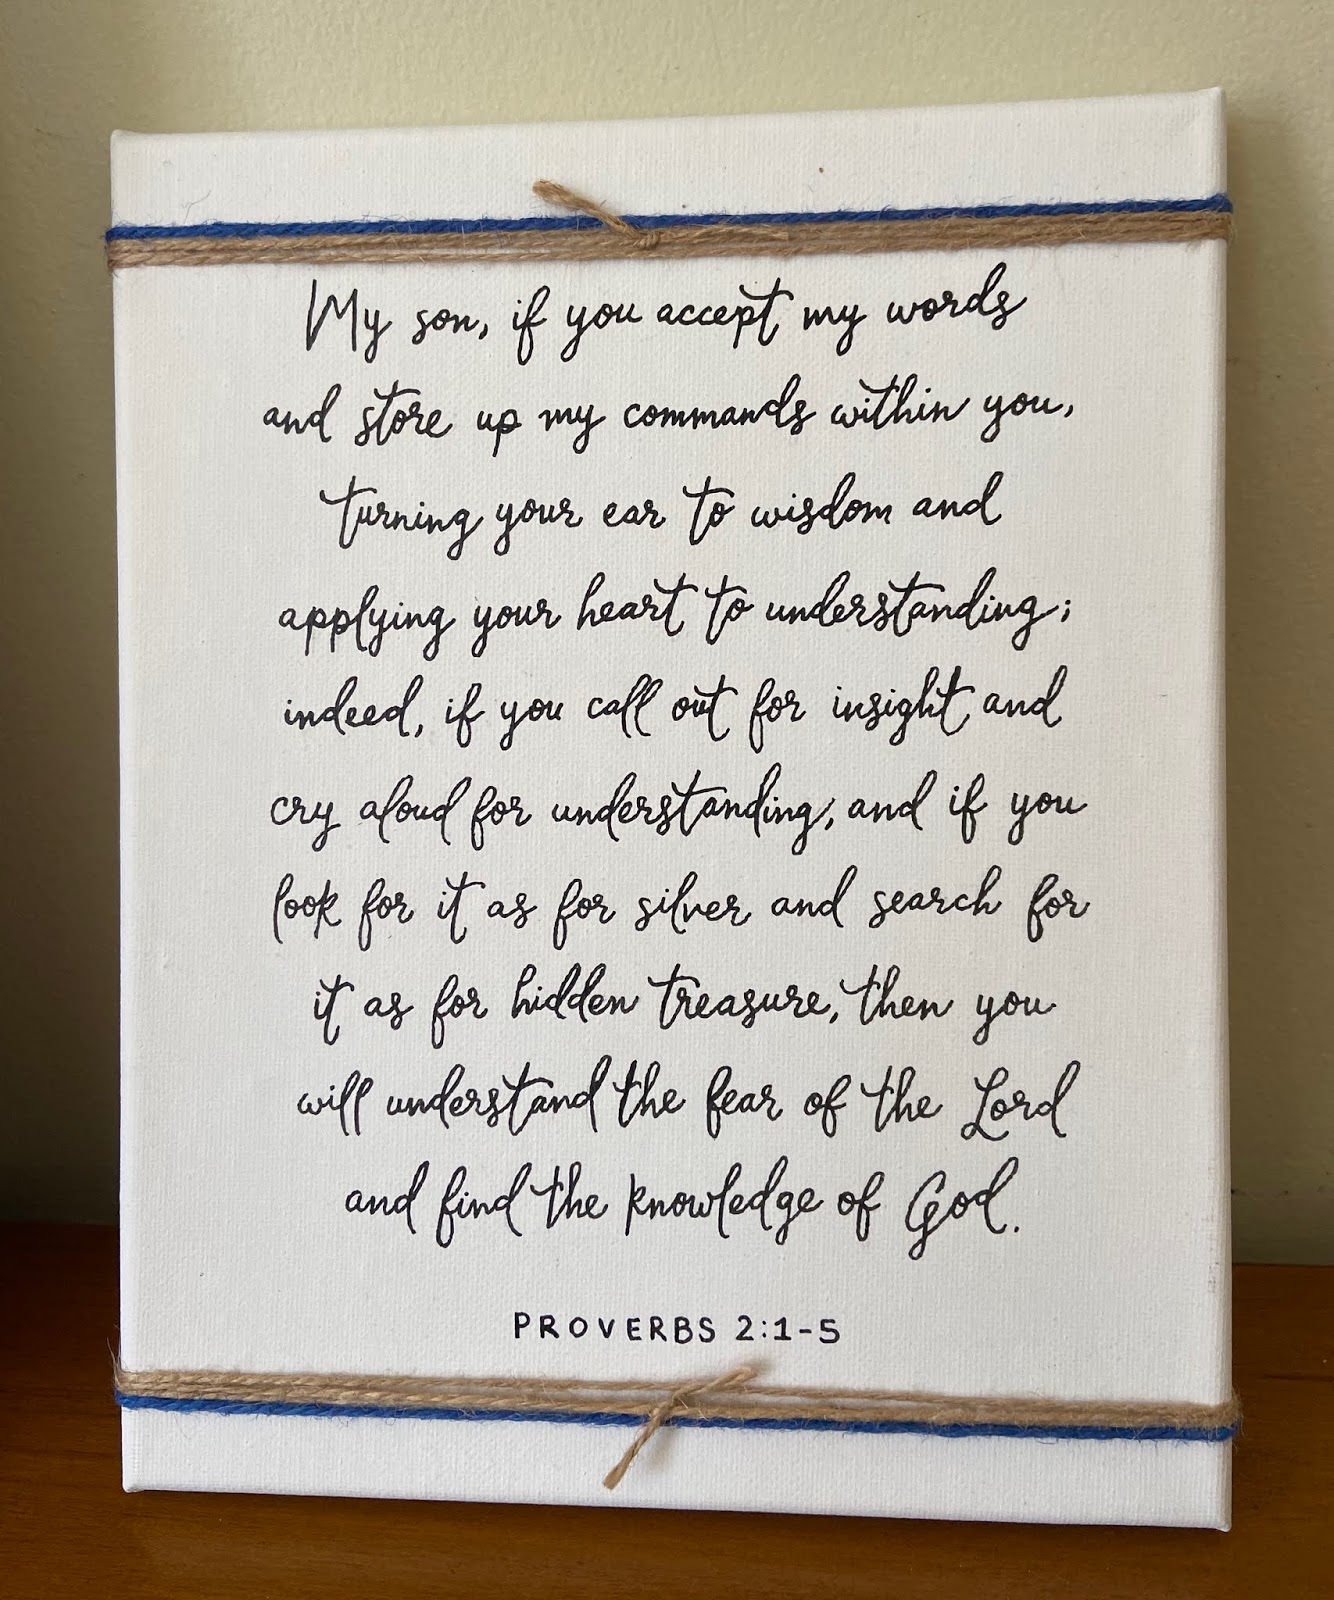 My son, if you accept my words
and store up my commands within you,
turning your ear to wisdom and
applying your heart to understanding;
indeed, if you call out for insight and
cry aloud for understanding, and if you
look for it as for silver and search for
it as for hidden treasure, then you
will understand the fear of the Lord
and find the knowledge of God.
PROVERBS 2:1-5